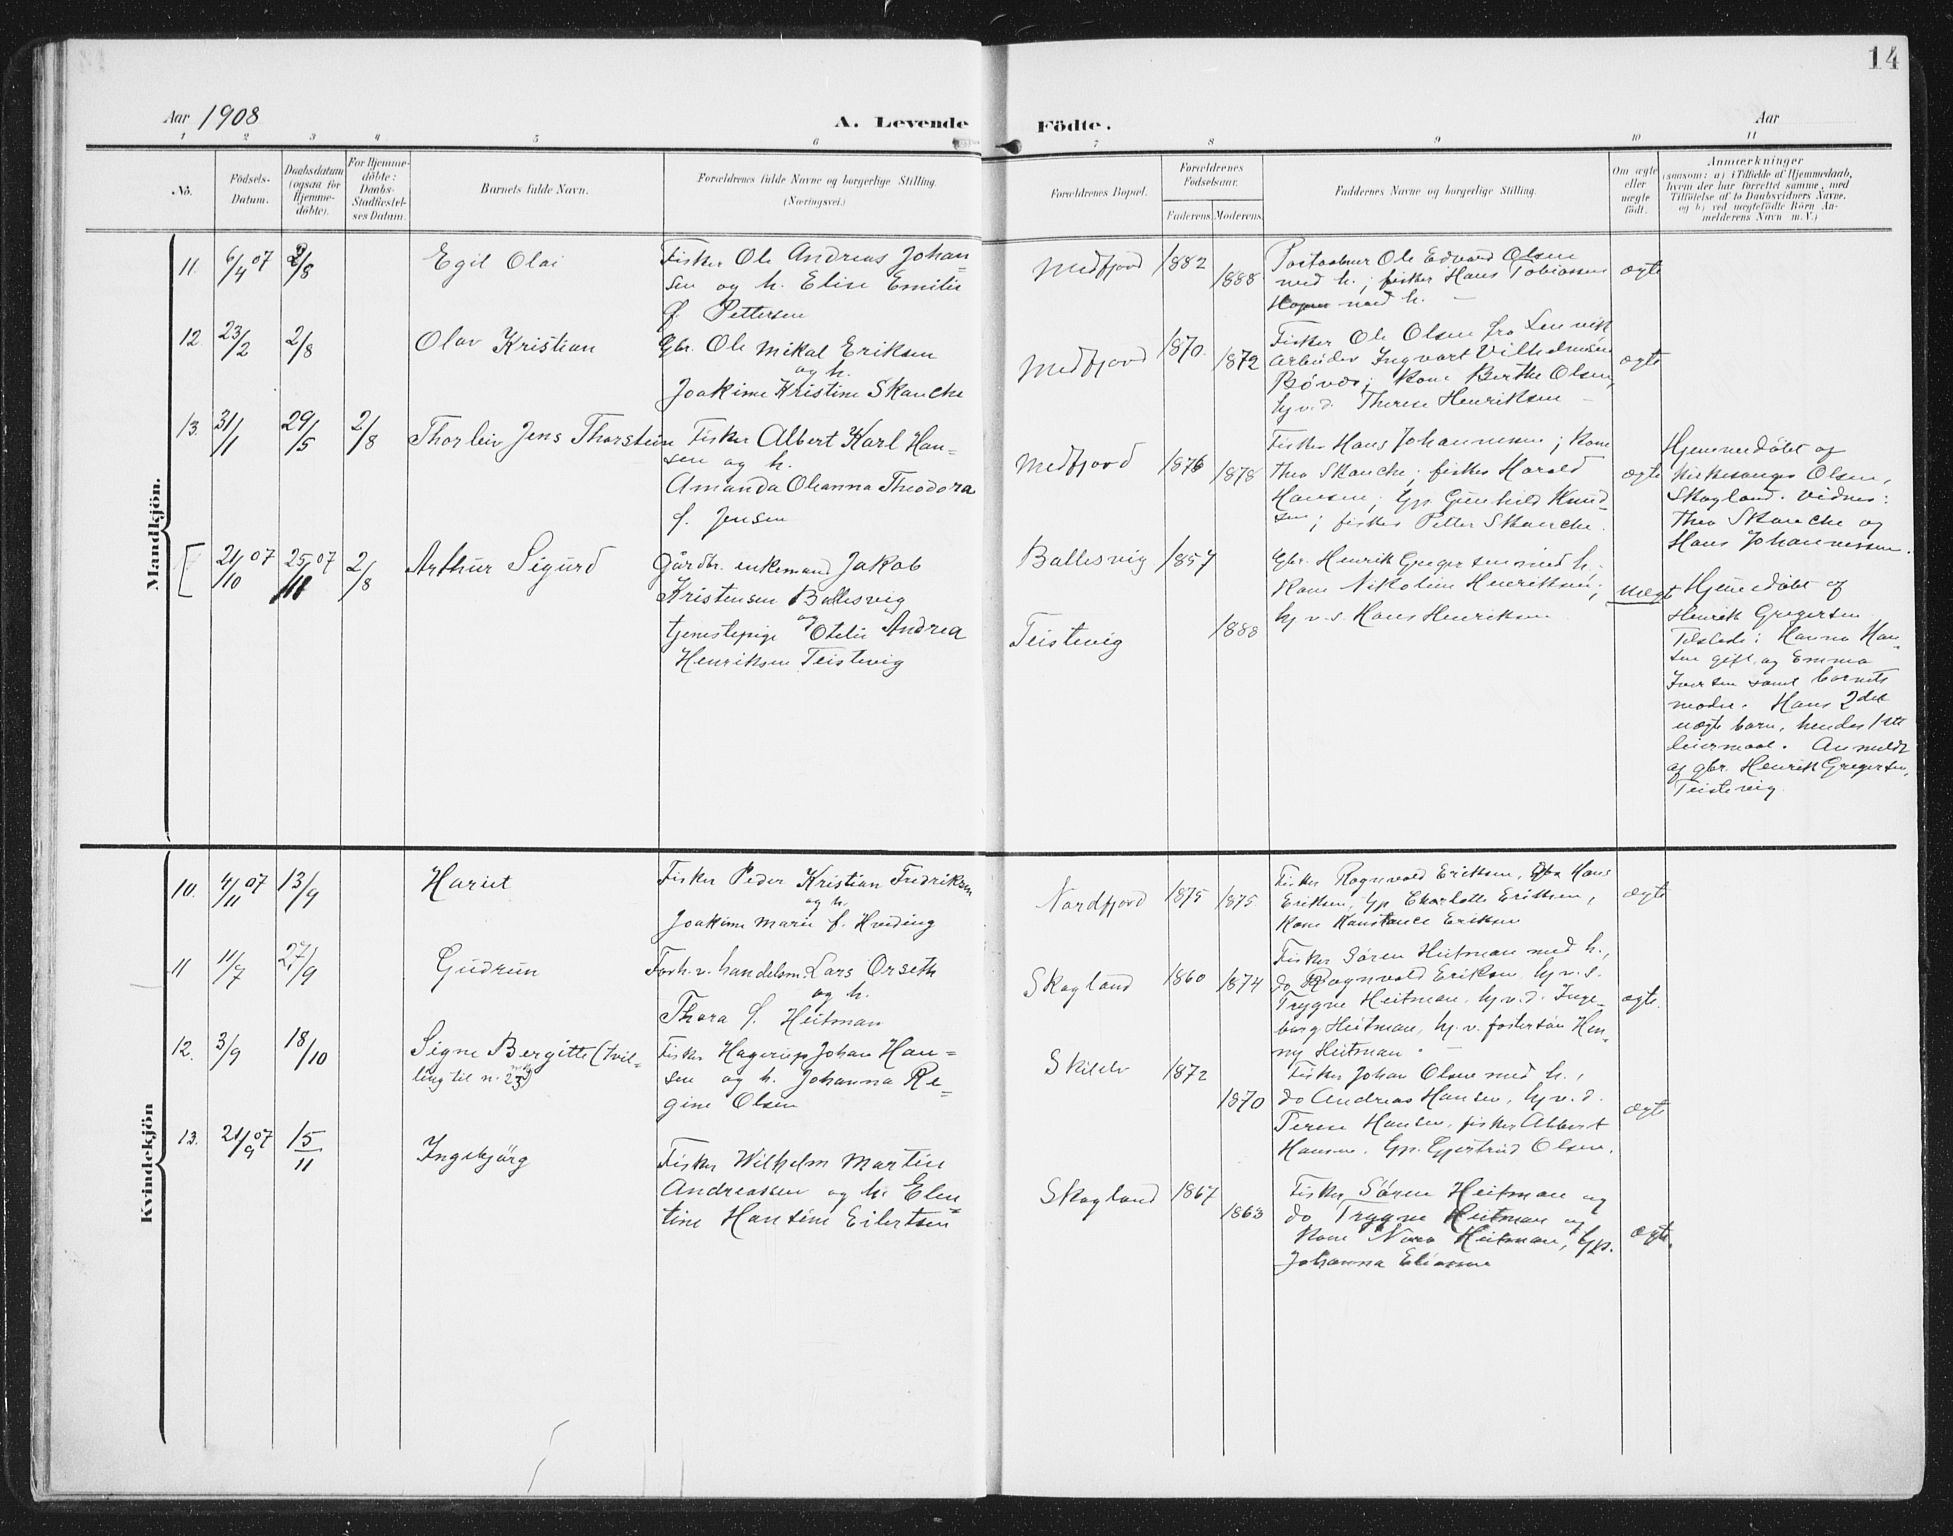 14
Aar 1908
A. Levende Födte.
Aar
1 2 3 4 5 6 7 8 9 10 11
No.
Födsels-
Datum.
Daabsdatum
(ogsaa for
Hjemme-
döbte).
For Hjemme-
döbte:
Daabs-
Stadfæstel-
ses Datum.
Barnets fulde Navn.
Forældrenes fulde Navne og borgerlige Stilling.
(Næringsvei.)
Forældrenes Bopæl.
Forældrenes
Födselsaar.
Faderens. Moderens.
Faddernes Navne og borgerlige Stilling.
Om ægte
eller
uægte
födt.
Anmærkninger
(saasom: a) i Tilfælde af Hjemmedaab,
hvem der har forrettet samme, med
Tilföielse af to Daabsvidners Navne,
og b) ved uægtefödte Börn An-
melderens Navn m. V.)
Mandkjön.
11. 6/4 07 2/8
Egil Olai
Fisker Ole Andreas Johan-
sen og h. Elise Emilie
f. Pettersen
Medfjord 1882 1888
Postaabner Ole Edvard Olsen
med h.; fisker Hans Tobiassen
med h. -
ægte
12 23/2 2/8
Olav Kristian
Gbr. Ole Mikal Eriksen
og h.
Joakime Kristine Skanche
Medfjord 1870. 1872
Fisker Ole Olsen fra Lenvik
Arbeider Ingvart Vilhelmsen
Bövær; Kone Berthe Olsen,
hj.v.d. Therese Henriksen -
ægte
13. 31/1 29/5 2/8
Thorleiv Jens Thorstein
Fisker Albert Karl Han-
sen og h.
Amanda Oleanna Theodora
f. Jensen
Medfjord 1876 1878
Fisker Hans Johannessen; Kone
Thea Skanche; fisker Harald
Hansen; Gp. Gunhild Knud-
sen; fisker Petter Skanche.
ægte
Hjemmedöbt af
Kirkesanger Olsen,
Skagland. Vidner:
Thea Skanche og
Hans Johannessen.
[ 21/10 07 25/11 07 2/8
Arthur Sigurd
Gårdbr. enkemand Jakob
Kristensen Ballesvig
og
tjenestepige Otelie Andrea
Henriksen Teistevig
Ballesvig 1857
Teistevig 1888
Gbr. Henrik Gregersen med h.
Kone Nikoline Henriksen;
hj.v.s. Hans Henriksen
uægte
Hjemedöbt af
Henrik Gregersen
Tilstede: Hanna Han-
sen gift, og Emma
Iversen samt barnets
moder. Hans 2det
uægte barn, hendes 1ste
leiermaal. Anmeldt
af gbr. Henrik Gregersen,
Teistevig.
Kvindekjön
10. 4/11 07 13/9
Hariet
Fisker Peder Kristian Fredriksen
og h.
Joakime Marie f. Hveding
Nordfjord 1875 1875
Fisker Ragnvald Eriksen, Gbr Hans
Eriksen, Gp. Charlotte Eriksen,
Kone Konstance Eriksen
ægte
11 11/7 27/9
Gudrun
Forh. v. handelsm. Lars Orseth
og h.
Thora f. Heitman
Skagland 1860 1874
Fisker Sören Heitman med h.,
do Ragnvald Eriksen, hj.v.s.
Trygve Heitman, hj.v.d. Inge-
borg Heitman, hj.v. fostersön Hen-
ny Heitman. -
ægte.
12. 3/9 18/10
Signe Bergitte (tvil-
ling til n. 23)
Fisker Hagerup Johan Han-
sen og h. Johanna Re-
gine Olsen
1872 1870
Fisker Johan Olsen med h.,
do Andreas Hansen, hj.v.d.
Terese Hansen, fisker Albert
Hansen, Gp. Gjertrud Olsen.
ægte
13. 21/9 07 15/11
Ingebjörg
Fisker Wilhelm Martin
Andreassen og h. Elen-
tine Hansine Eilertsen
Skagland 1867 1863
Fisker Sören Heitman og
do Trygve Heitman og
Kone Nora Heitman, Gp.
Johanna Eliassen
ægte.